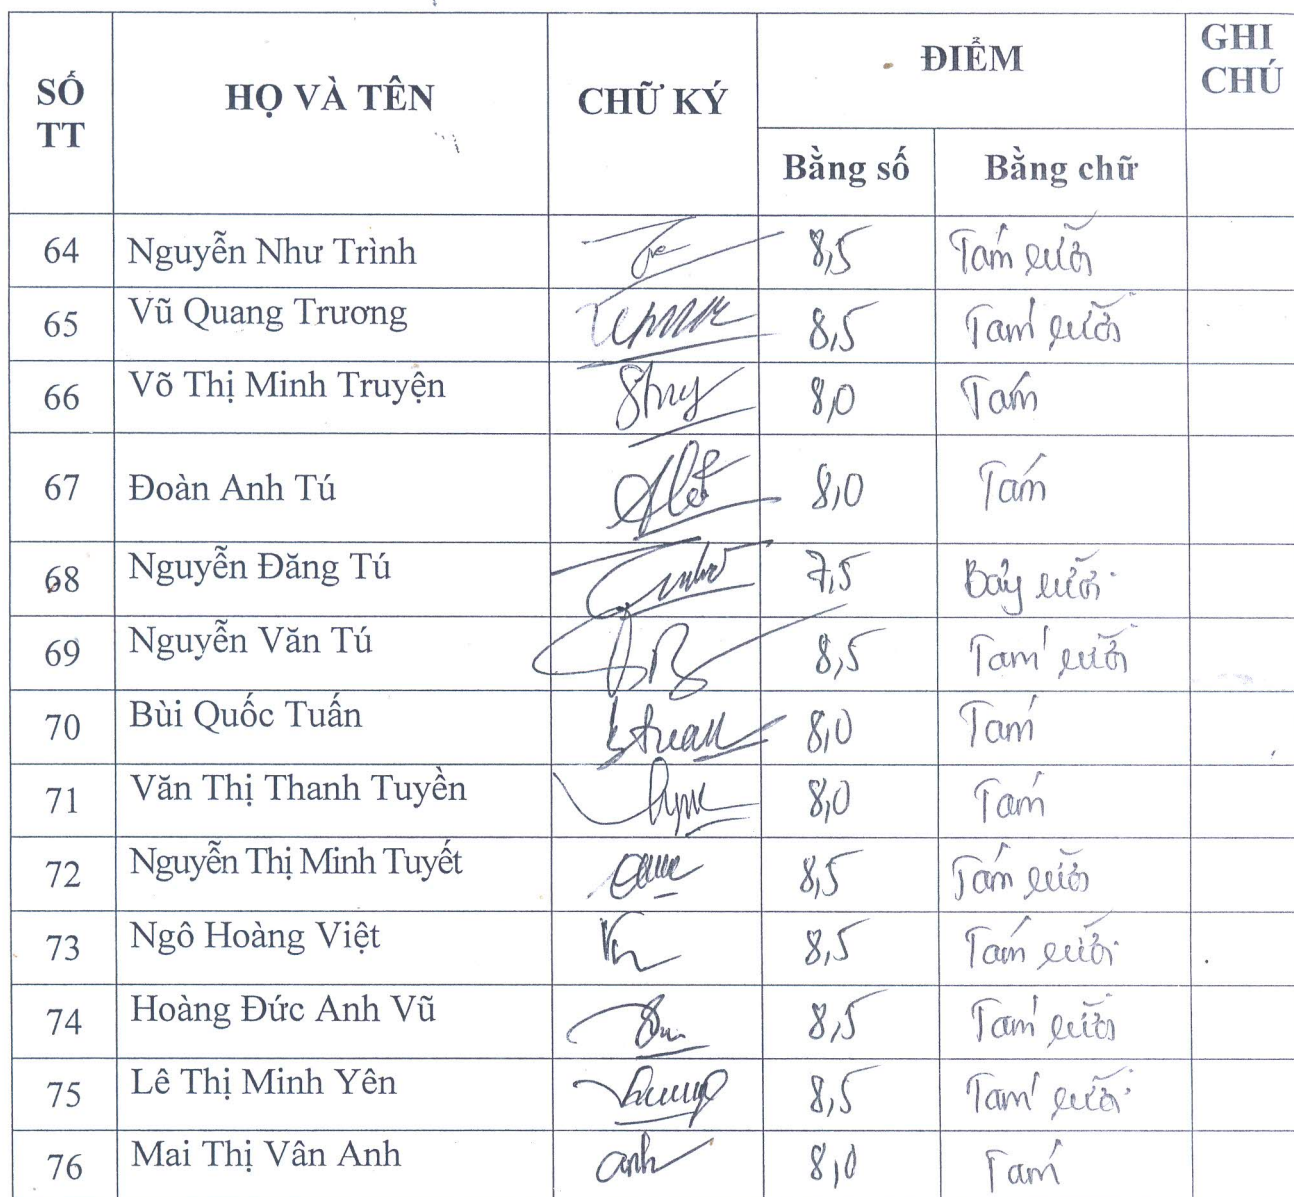 SỐ TT HỌ VÀ TÊN CHỮ KÝ ĐIỂM GHI CHÚ
Bằng số Bằng chữ
64 Nguyễn Như Trình 8,5 Tám rưỡi
65 Vũ Quang Trương 8,5 Tám rưỡi
66 Võ Thị Minh Truyện 8,0 Tám
67 Đoàn Anh Tú 8,0 Tám
68 Nguyễn Đăng Tú 7,5 Bảy rưỡi
69 Nguyễn Văn Tú 8,5 Tám rưỡi
70 Bùi Quốc Tuấn 8,0 Tám
71 Văn Thị Thanh Tuyền 8,0 Tám
72 Nguyễn Thị Minh Tuyết 8,5 Tám rưỡi
73 Ngô Hoàng Việt 8,5 Tám rưỡi
74 Hoàng Đức Anh Vũ 8,5 Tám rưỡi
75 Lê Thị Minh Yên 8,5 Tám rưỡi
76 Mai Thị Vân Anh anh 8,0 Tám